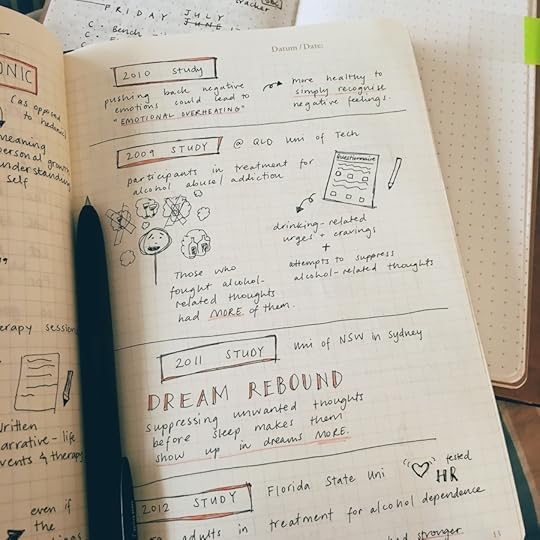 tracker
FRIDAY JULY
JUNE
C. Bench
Datum / Date:
ONIC
(as opposed
to hedonic
meaning
personal growth
understanding
self
erapy session
written
narrative - life
vents & therapy
even if
the
2010 Study
pushing back negative
emotions could lead to
"EMOTIONAL OVERHEATING"
more healthy to
simply recognise
negative feelings.
2009 STUDY @ QLD Uni of Tech
participants in treatment for
alcohol abuse/addiction
Questionnaire
drinking-related
urges + cravings
+
attempts to suppress
alcohol-related thoughts
Those who
fought alcohol-
related thoughts
had MORE of them.
2011 STUDY Uni of NSW in Sydney
DREAM REBOUND
suppressing unwanted thoughts
before sleep makes them
show up in dreams MORE.
2012 STUDY Florida State Uni tested
HR
adults in treatment for alcohol dependence
stronger